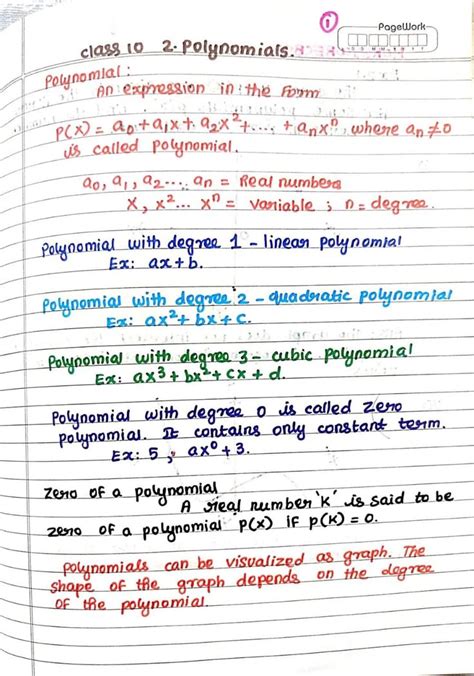 1
PageWork
class 10 2. Polynomials.
Polynomial:
An expression in the form
P(x) = a₀ + a₁x + a₂x² + .... + aₙxⁿ, where aₙ ≠ 0
is called polynomial.
a₀, a₁, a₂.... aₙ = Real numbers
x, x² ... xⁿ = variable ; n = degree.
Polynomial with degree 1 - linear polynomial
Ex: ax + b.
Polynomial with degree 2 - quadratic polynomial
Ex: ax² + bx + c.
Polynomial with degree 3 - cubic polynomial
Ex: ax³ + bx² + cx + d.
Polynomial with degree 0 is called zero
polynomial. It contains only constant term.
Ex: 5, ax⁰ + 3.
Zero of a polynomial
A real number 'k' is said to be
zero of a polynomial P(x) if p(k) = 0.
Polynomials can be visualized as graph. The
shape of the graph depends on the degree
of the polynomial.